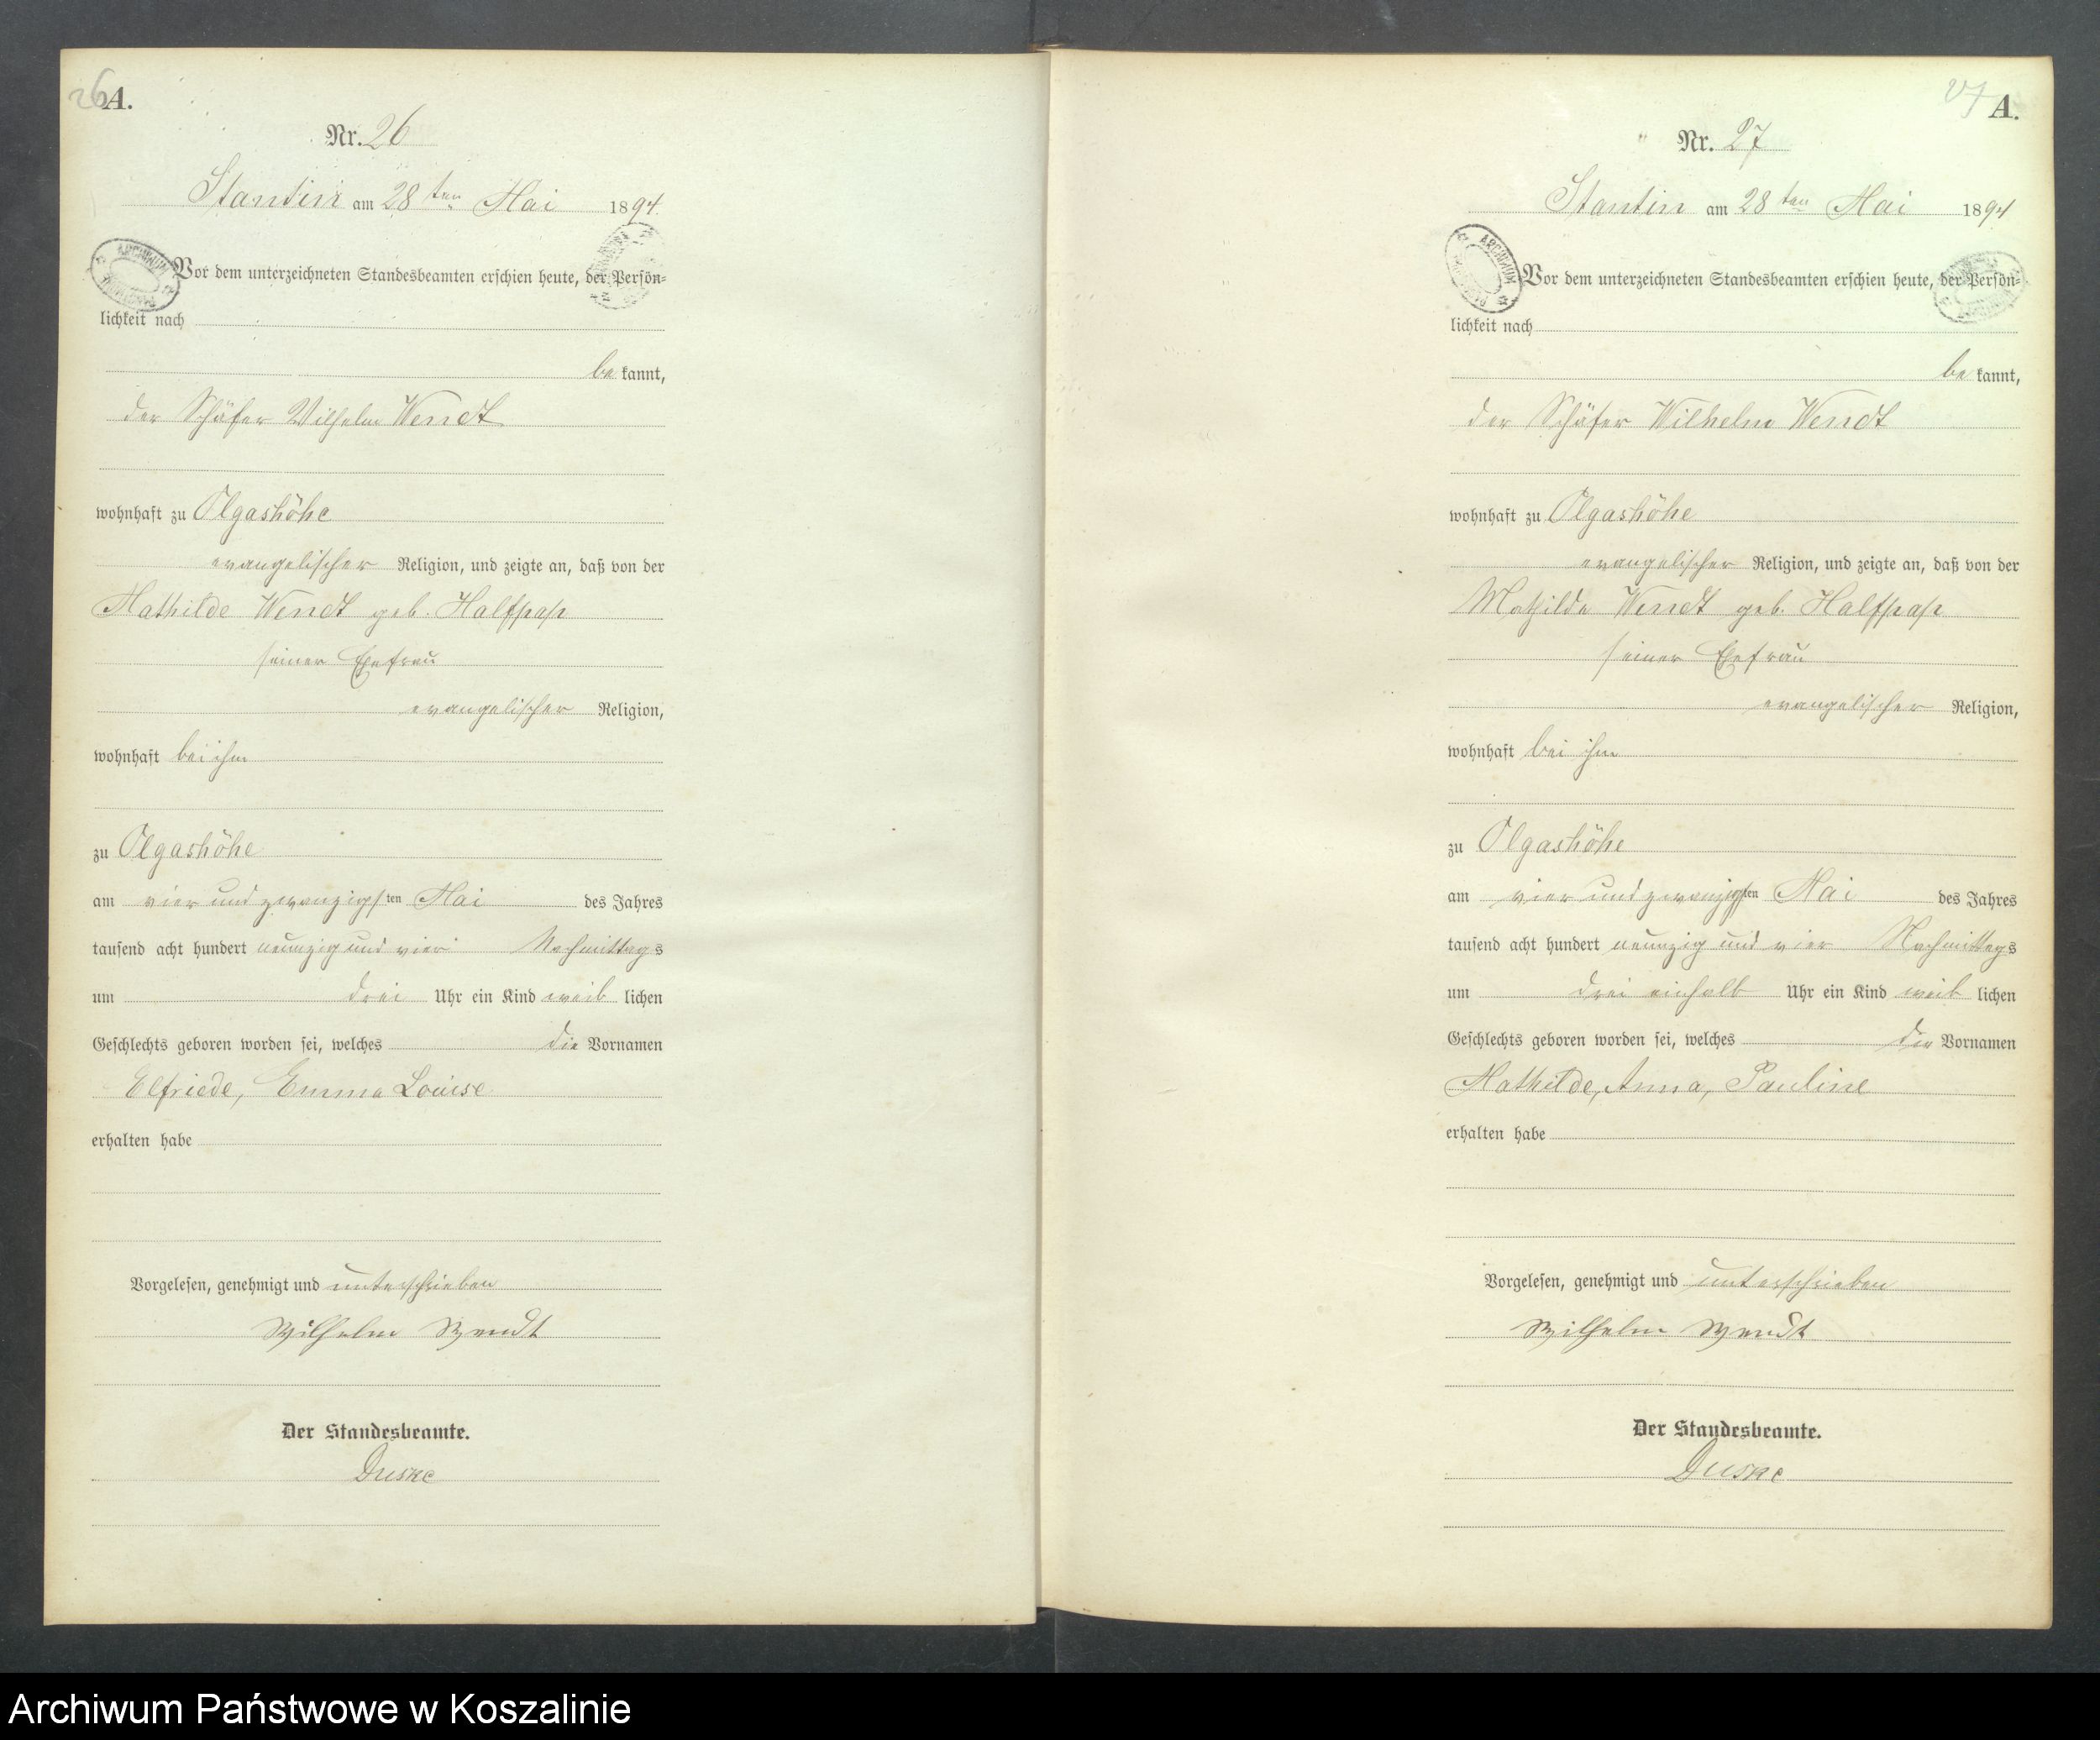 26 A.
Nr. 26
Stantin am 28ten Mai 1894.
ARCHIWUM
Vor dem unterzeichneten Standesbeamten erschien heute, der Persön=
lichkeit nach
be kannt,
der Schäfer Wilhelm Wendt
wohnhaft zu Olgashöhe
evangelischer Religion, und zeigte an, daß von der
Mathilde Wendt geb. Halfpap
seiner Ehefrau
evangelischer Religion,
wohnhaft bei ihm
zu Olgashöhe
am vier und zwanzigsten Mai des Jahres
tausend acht hundert neunzig und vier Nachmittags
um drei Uhr ein Kind weib lichen
Geschlechts geboren worden sei, welches die Vornamen
Elfriede, Emma Louise
erhalten habe
Vorgelesen, genehmigt und unterschrieben
Wilhelm Wendt
Der Standesbeamte.
Duske
27 A.
Nr. 27
Stantin am 28ten Mai 1894
ARCHIWUM
Vor dem unterzeichneten Standesbeamten erschien heute, der Persön=
lichkeit nach
be kannt,
der Schäfer Wilhelm Wendt
wohnhaft zu Olgashöhe
evangelischer Religion, und zeigte an, daß von der
Mathilde Wendt geb. Halfpap
seiner Ehefrau
evangelischer Religion,
wohnhaft bei ihm
zu Olgashöhe
am vier und zwanzigsten Mai des Jahres
tausend acht hundert neunzig und vier Nachmittags
um drei einhalb Uhr ein Kind weib lichen
Geschlechts geboren worden sei, welches die Vornamen
Mathilde, Anna, Pauline
erhalten habe
Vorgelesen, genehmigt und unterschrieben
Wilhelm Wendt
Der Standesbeamte.
Duske
Archiwum Państwowe w Koszalinie